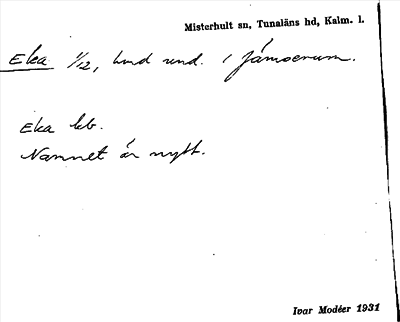 Misterhult sn, Tunaläns hd, Kalm. l.
Eka 1/12, hmd und. i Jämserum.
Eka kb.
Namnet är nytt.
Ivar Modéer 1931